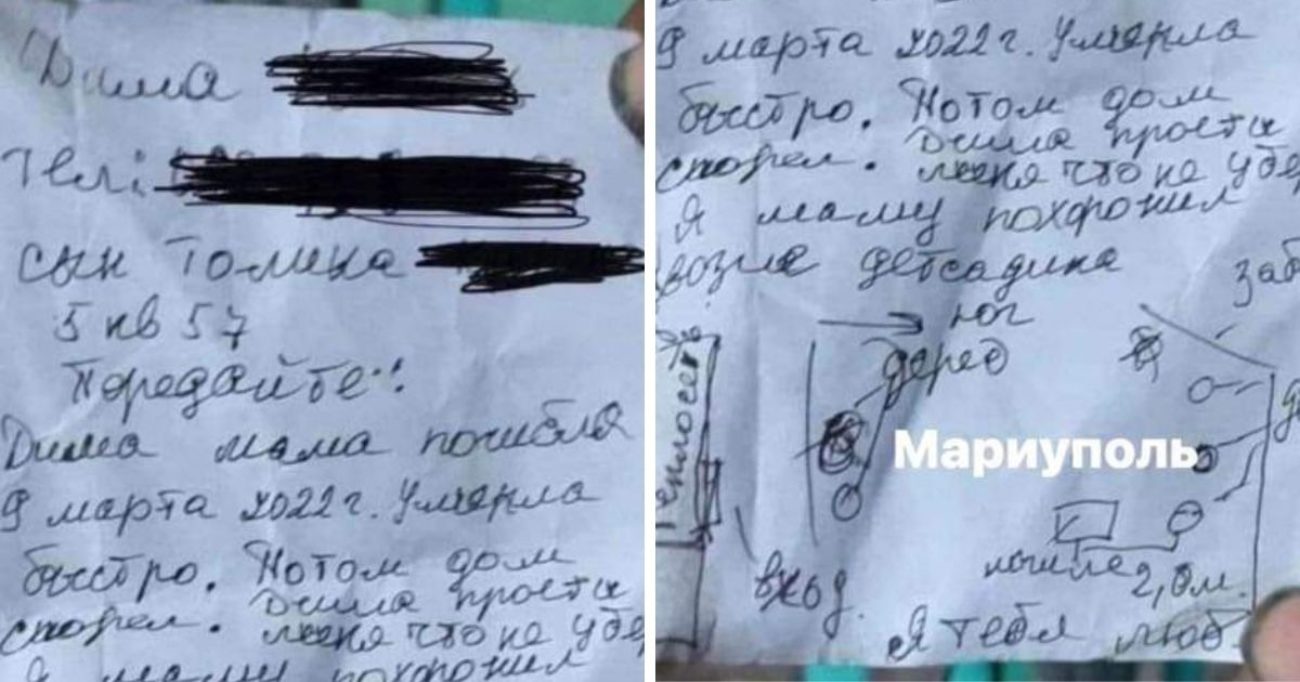 Дима
Тел:
сын Толика
5 кв 57
Передайте!
Дима мама погибла
9 марта 2022г. Умерла
быстро. Потом дом
сгорел. Дима прости
меня что не убе
Я маму похоронил
9 марта 2022г. Умерла
быстро. Потом дом
сгорел. Дима прости
меня что не убе
Я маму похоронил
возле детсадика
заб
юг
дерев
Теплосеть
Мариуполь
вход
могила 2,0м.
Я тебя люб